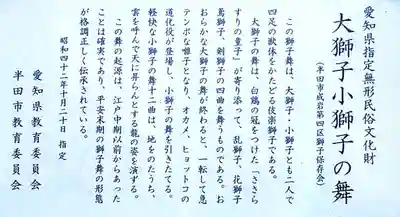 愛知県指定無形民俗文化財
大獅子小獅子の舞
(半田市成岩第四区獅子保存会)
この獅子舞は、大獅子・小獅子とも二人で
四足の獣体をかたどる伎楽獅子である。
大獅子の舞は、白鶏の冠をつけた「ささら
すりの童子」が寄り添って、乱獅子、花獅子
蔦獅子、剣獅子の四曲を舞うものである。お
おらかな大獅子の舞が終わると、一転して急
テンポな囃子となり、オカメ、ヒョットコの
道化役が登場し、小獅子の舞を引きたてる。
軽快な小獅子の舞十二曲は、地をのたうち、
雲を呼んで天に昇らんとする龍の姿を演ずる。
この舞の起源は、江戸中期以前からあった
ことは確実であり、平安末期の獅子舞の形態
が格調正しく伝承されている。
昭和四十二年十月二十日 指定
愛知県教育委員会
半田市教育委員会